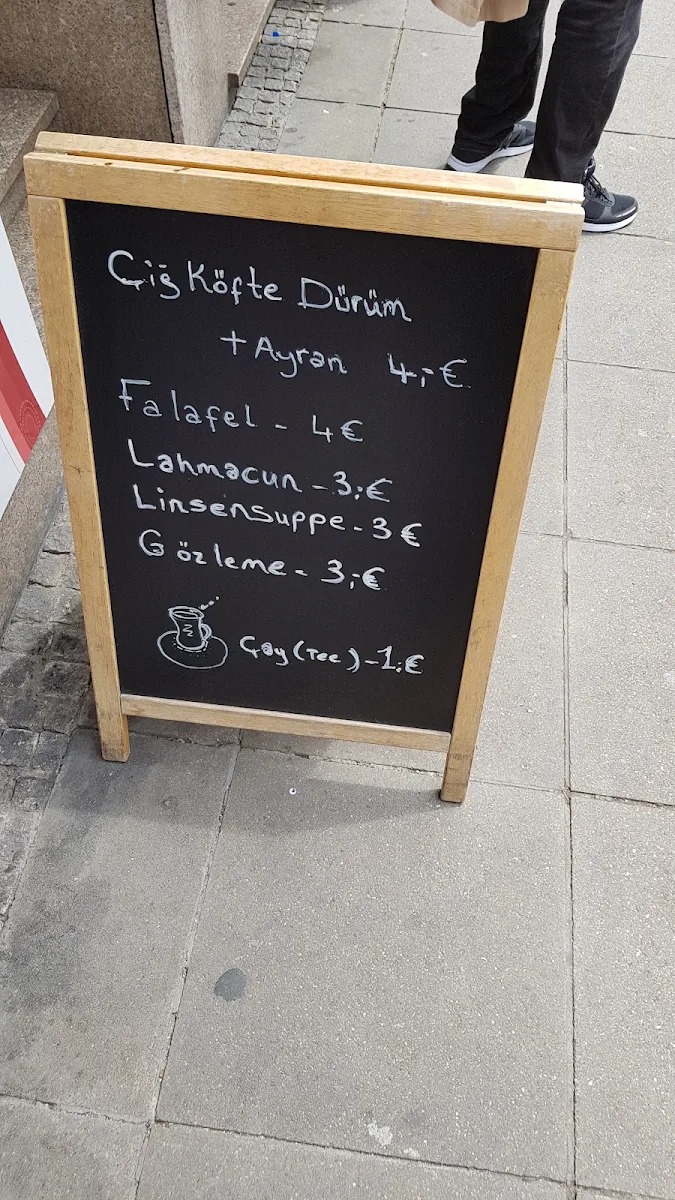 Çiğ Köfte Dürüm
+ Ayran 4,-€
Falafel - 4€
Lahmacun - 3,-€
Linsensuppe - 3€
Gözleme - 3,-€
Çay (Tee) - 1,-€